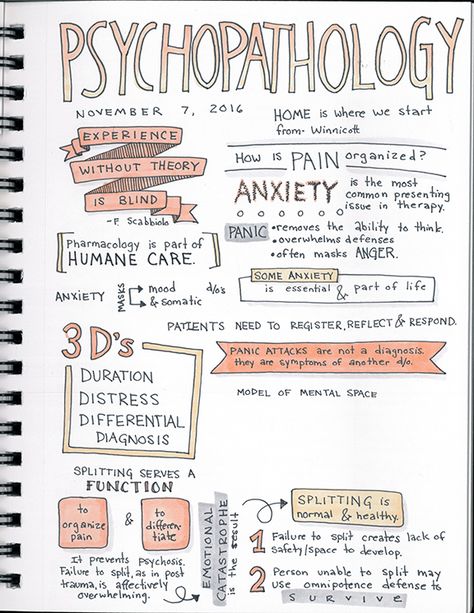 PSYCHOPATHOLOGY
NOVEMBER 7, 2016
HOME is where we start
from - Winnicott
EXPERIENCE
WITHOUT THEORY
IS BLIND
- F. Scabbiolo
HOW IS PAIN organized?
ANXIETY is the most
common presenting
issue in therapy.
PANIC • removes the ability to think.
• overwhelms defenses
• often masks ANGER.
Pharmacology is part of
HUMANE CARE.
SOME ANXIETY
is essential & part of life
ANXIETY MASKS mood d/o's
& somatic
PATIENTS NEED TO REGISTER, REFLECT & RESPOND.
3 D's
DURATION
DISTRESS
DIFFERENTIAL
DIAGNOSIS
PANIC ATTACKS are not a diagnosis.
they are symptoms of another d/o.
MODEL OF MENTAL SPACE
SPLITTING SERVES A
FUNCTION
to
organize
pain
&
to
differen-
tiate
It prevents psychosis.
Failure to split, as in post
trauma, is affectively
overwhelming.
EMOTIONAL
CATASTROPHE
is the result
SPLITTING is
normal & healthy.
1 Failure to split creates lack of
safety/space to develop.
2 Person unable to split may
use omnipotence defense to
SURVIVE